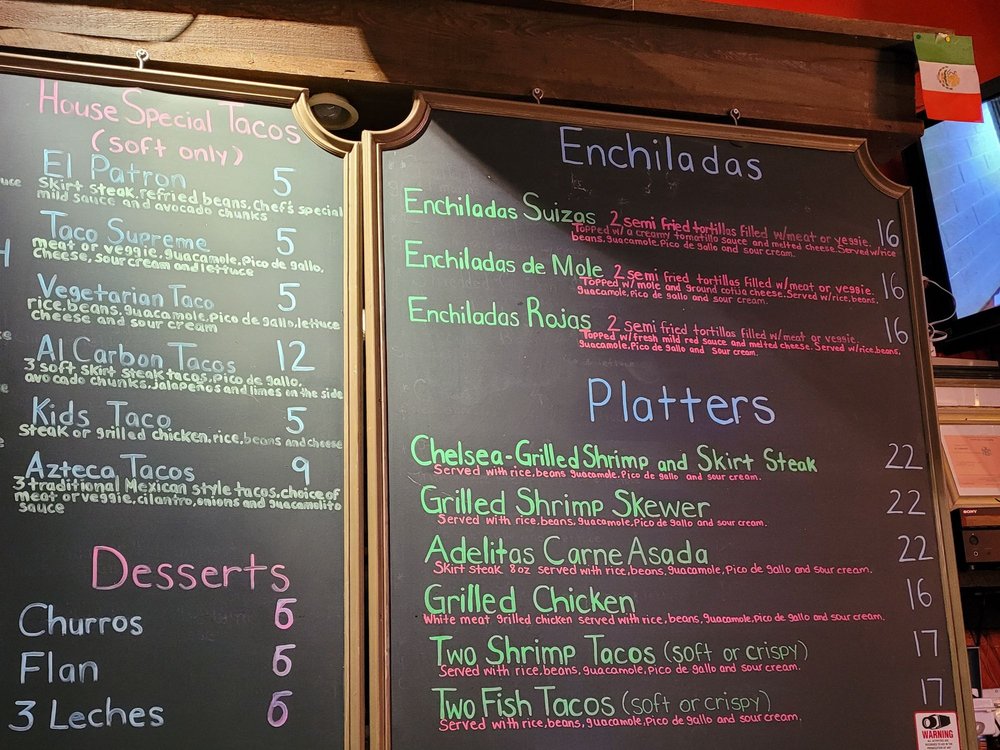 House Special Tacos
(soft only)
El Patron 5
Skirt steak, refried beans, Chef's special
mild sauce and avocado chunks
Taco Supreme 5
meat or veggie, guacamole, Pico de gallo,
cheese, sour cream and lettuce
Vegetarian Taco 5
rice, beans, guacamole, Pico de gallo, lettuce
cheese and sour cream
Al Carbon Tacos 12
3 soft skirt steak tacos, Pico de gallo,
avocado chunks, Jalapeños and limes on the side
Kids Taco 5
steak or grilled chicken, rice, beans and cheese
Azteca Tacos 9
3 traditional Mexican style tacos, choice of
meat or veggie, cilantro, onions and guacamolito
sauce
Desserts
Churros 6
Flan 6
3 Leches 6
Enchiladas
Enchiladas Suizas 2 semi fried tortillas filled w/meat or veggie. 16
Topped w/a creamy tomatillo sauce and melted cheese. Served w/rice
beans, guacamole, Pico de gallo and sour cream.
Enchiladas de Mole 2 semi fried tortillas filled w/meat or veggie. 16
Topped w/mole and ground cotija cheese. Served w/rice, beans,
guacamole, Pico de gallo and sour cream.
Enchiladas Rojas 2 semi fried tortillas filled w/meat or veggie. 16
Topped w/fresh mild red sauce and melted cheese. Served w/rice, beans,
guacamole, Pico de gallo and sour cream.
Platters
Chelsea-Grilled Shrimp and Skirt Steak 22
Served with rice, beans guacamole, Pico de gallo and sour cream.
Grilled Shrimp Skewer 22
Served with rice, beans, guacamole, Pico de gallo and sour cream.
Adelitas Carne Asada 22
Skirt steak 8oz served with rice, beans, guacamole, Pico de gallo and sour cream.
Grilled Chicken 16
White meat grilled chicken served with rice, beans, guacamole, Pico de gallo and sour cream.
Two Shrimp Tacos (soft or crispy) 17
Served with rice, beans, guacamole, Pico de gallo and sour cream.
Two Fish Tacos (soft or crispy) 17
Served with rice, beans, guacamole, Pico de gallo and sour cream.
SONY
WARNING